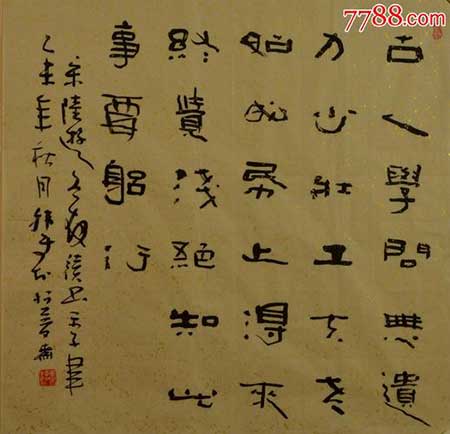 7788.com
古人學問無遺
力少壯工夫老
始成帋上得來
終覺淺絕知此
事要躬行
宋陸游冬夜讀書示子聿
乙未年秋月